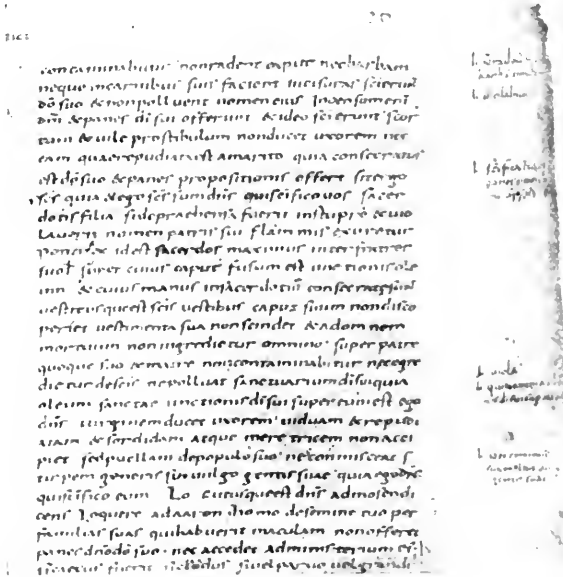 contaminabitur non radent caput nec barbam
neque incarnibus suis facient incisuras sci erunt
dō suo & non polluent nomen eius Incensum eni
dn̄i & panes di sui offerunt & ideo sci erunt scor
tum & uile prostibulum non ducet uxorem nec
eam quae repudiata est amarito quia consecratus
est dō suo & panes propositionis offert sit ergo
scs quia & ego scs sum dn̄s qui scifico uos sacer
dotis filia si deprachensa fuerit in stupro & uio
lauerit nomen patris sui flammis exuretur
pontifex id est sacerdos maximus inter fratres
suos super cuius caput fusum est unctionis ole
um & cuius manus in sacerdotiū consecratae sunt
uestitus que est scis uestibus caput suum non disco
periet uestimenta sua non scindet & ad omnem
mortuum non ingredietur omnino super patre
quoque suo & matre non contaminabitur nec egre
dietur de scis ne polluat sanctuarium di sui quia
oleum sanctae unctionis di sui super eum est ego
dn̄s uirginem ducet uxorem uiduam & repudi
atam & sordidam atque meretricem non acci
piet sed puellam de populo suo ne commisceat s
tirpem generis sui uulgo gentis suae quia ego dn̄s
qui scifico eum Locutusque est dn̄s ad mosen di
cens Loquere ad aaron homo de semine tuo per
familias suas qui habuerit maculam non offeret
panes dō suo nec accedet ad ministerium eius
si caecus fuerit si clodus si uel paruo uel grandi